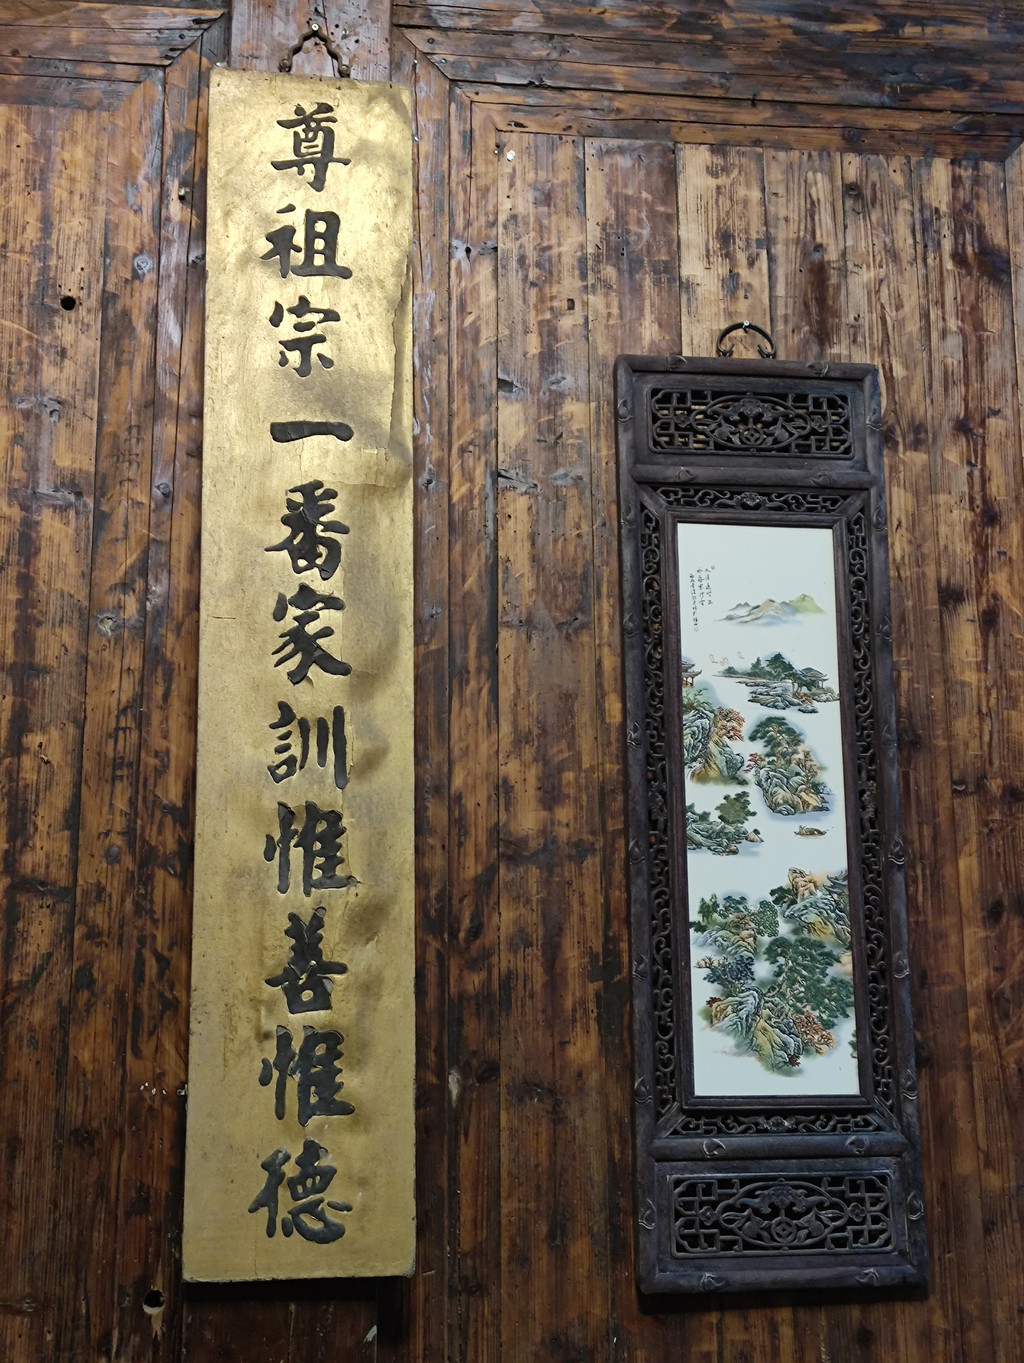 尊祖宗一番家訓惟善惟德